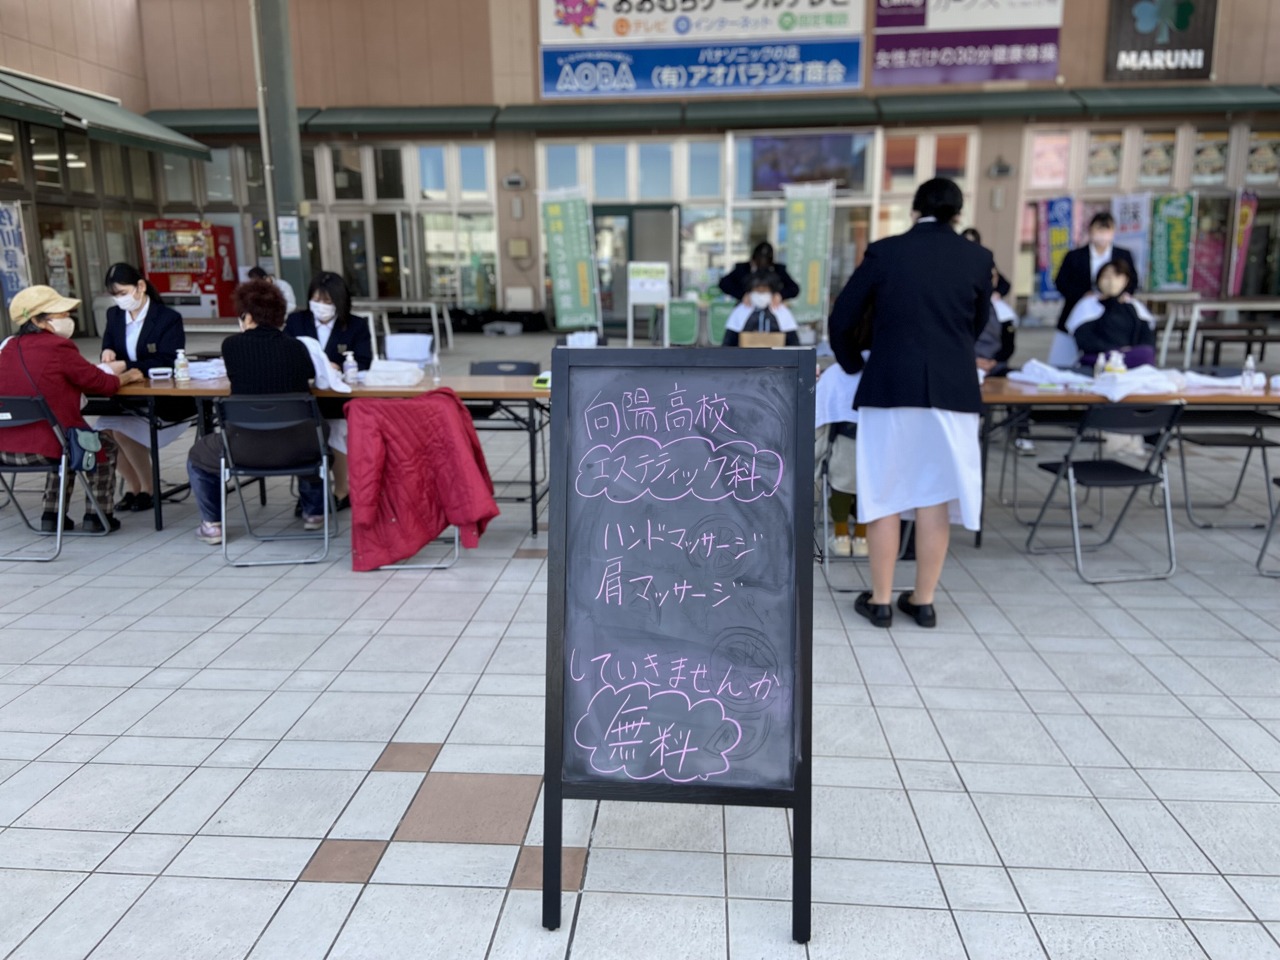 おおむらケーブルテレビ
テレビ インターネット 固定電話
パナソニックの店
AOBA (有)アオバラジオ商会
女性だけの30分健康体操
MARUNI
向陽高校
エステティック科
ハンドマッサージ
肩マッサージ
していきませんか
無料